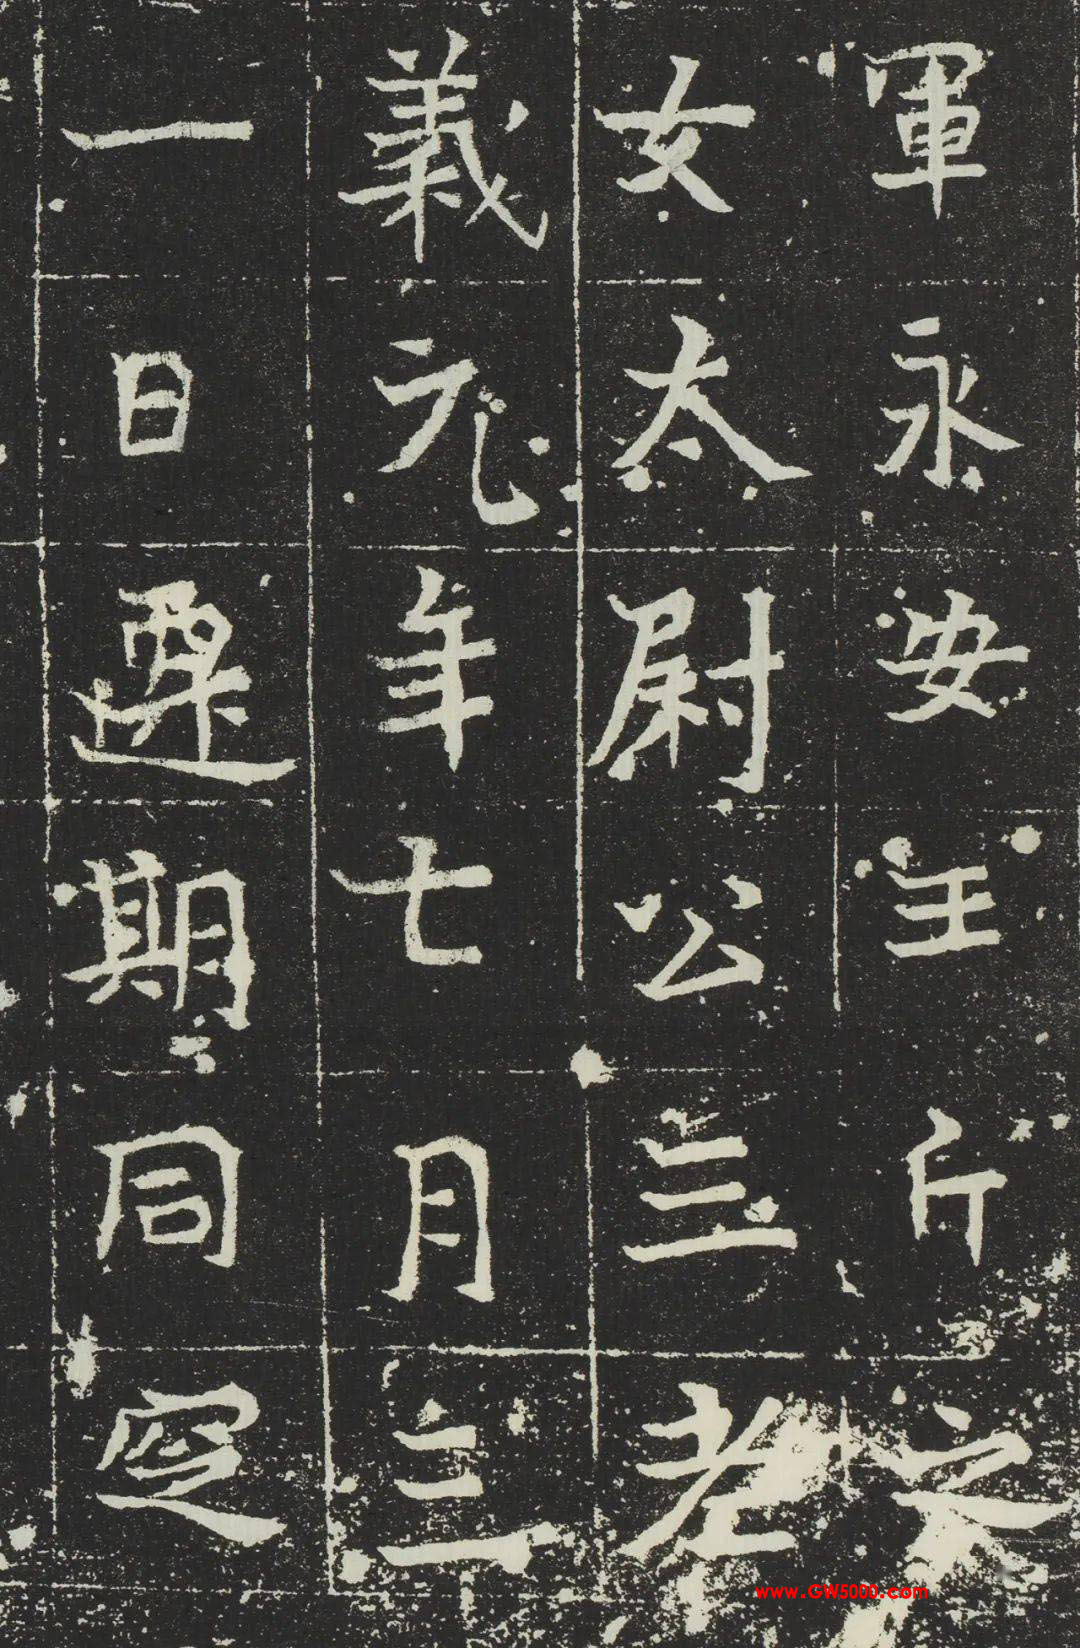 軍永安王斤
女太尉公三老
義元年七月三
一日遷期同窆
www.GW5000.com